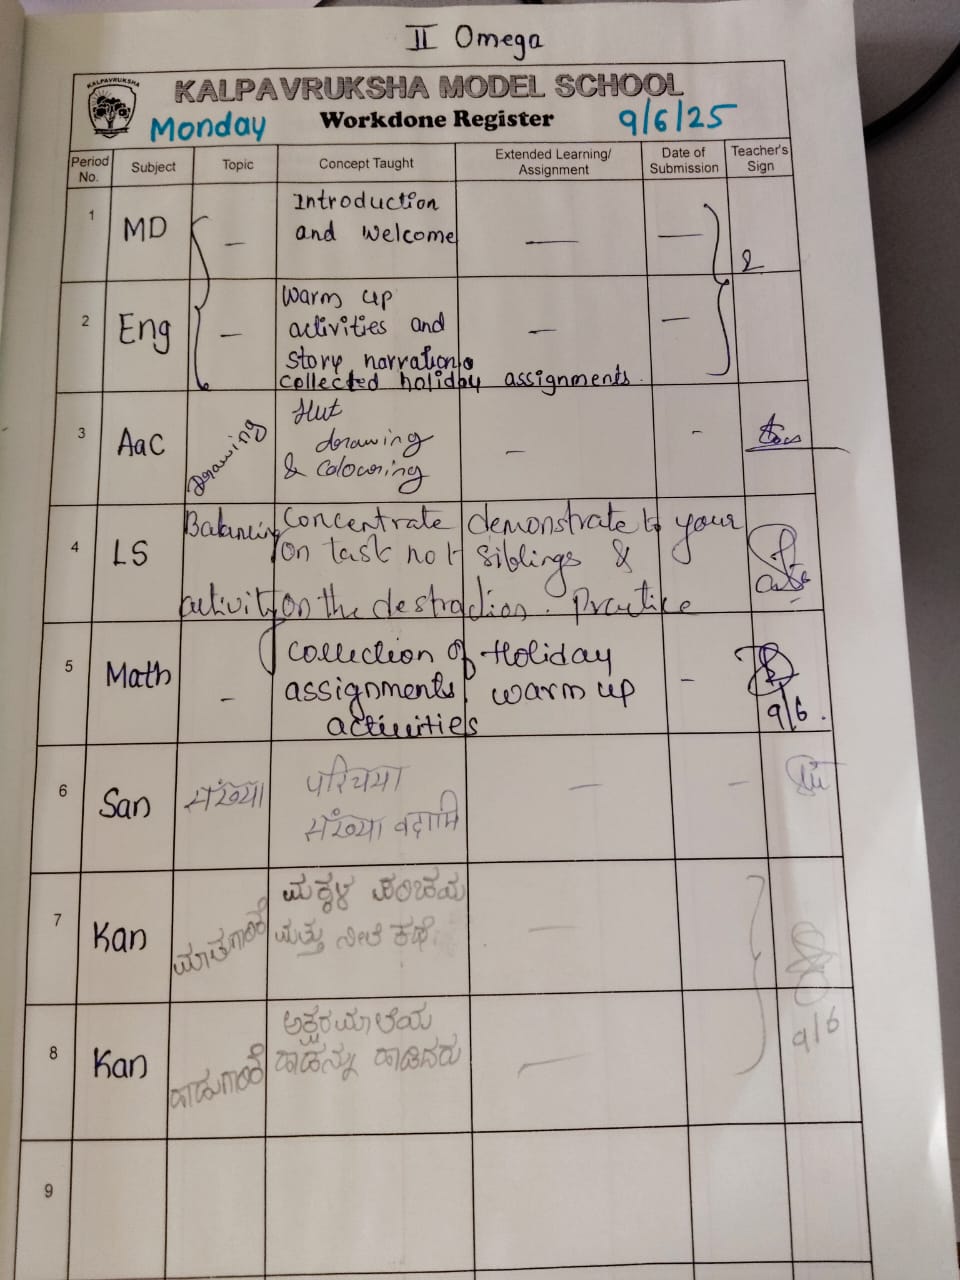 II Omega
KALPAVRUKSHA
KALPAVRUKSHA MODEL SCHOOL
Monday Workdone Register 9/6/25
Period No. Subject Topic Concept Taught Extended Learning/ Assignment Date of Submission Teacher's Sign
1 MD — Introduction — —
and welcome
2 Eng — Warm up — —
activities and
story narration
collected holiday assignments.
3 AaC Drawing Hut — -
drawing
& colouring
4 LS Balancing Concentrate demonstrate to your
on task not siblings &
activity on the destraction. Practice
5 Math - Collection of Holiday -
assignments, warm up
activities
9/6.
6 San संख्या परिचया — —
संख्या वदामि
7 Kan ಮಾತುಗಾರಿಕೆ ಮಕ್ಕಳ ಪರಿಚಯ —
ಮತ್ತು ನೀತಿ ಕಥೆ.
8 Kan ಹಾಡುಗಾರಿಕೆ ಅಕ್ಷರಮಾಲೆಯ —
ಹಾಡನ್ನು ಹಾಡಿದರು
9/6
9